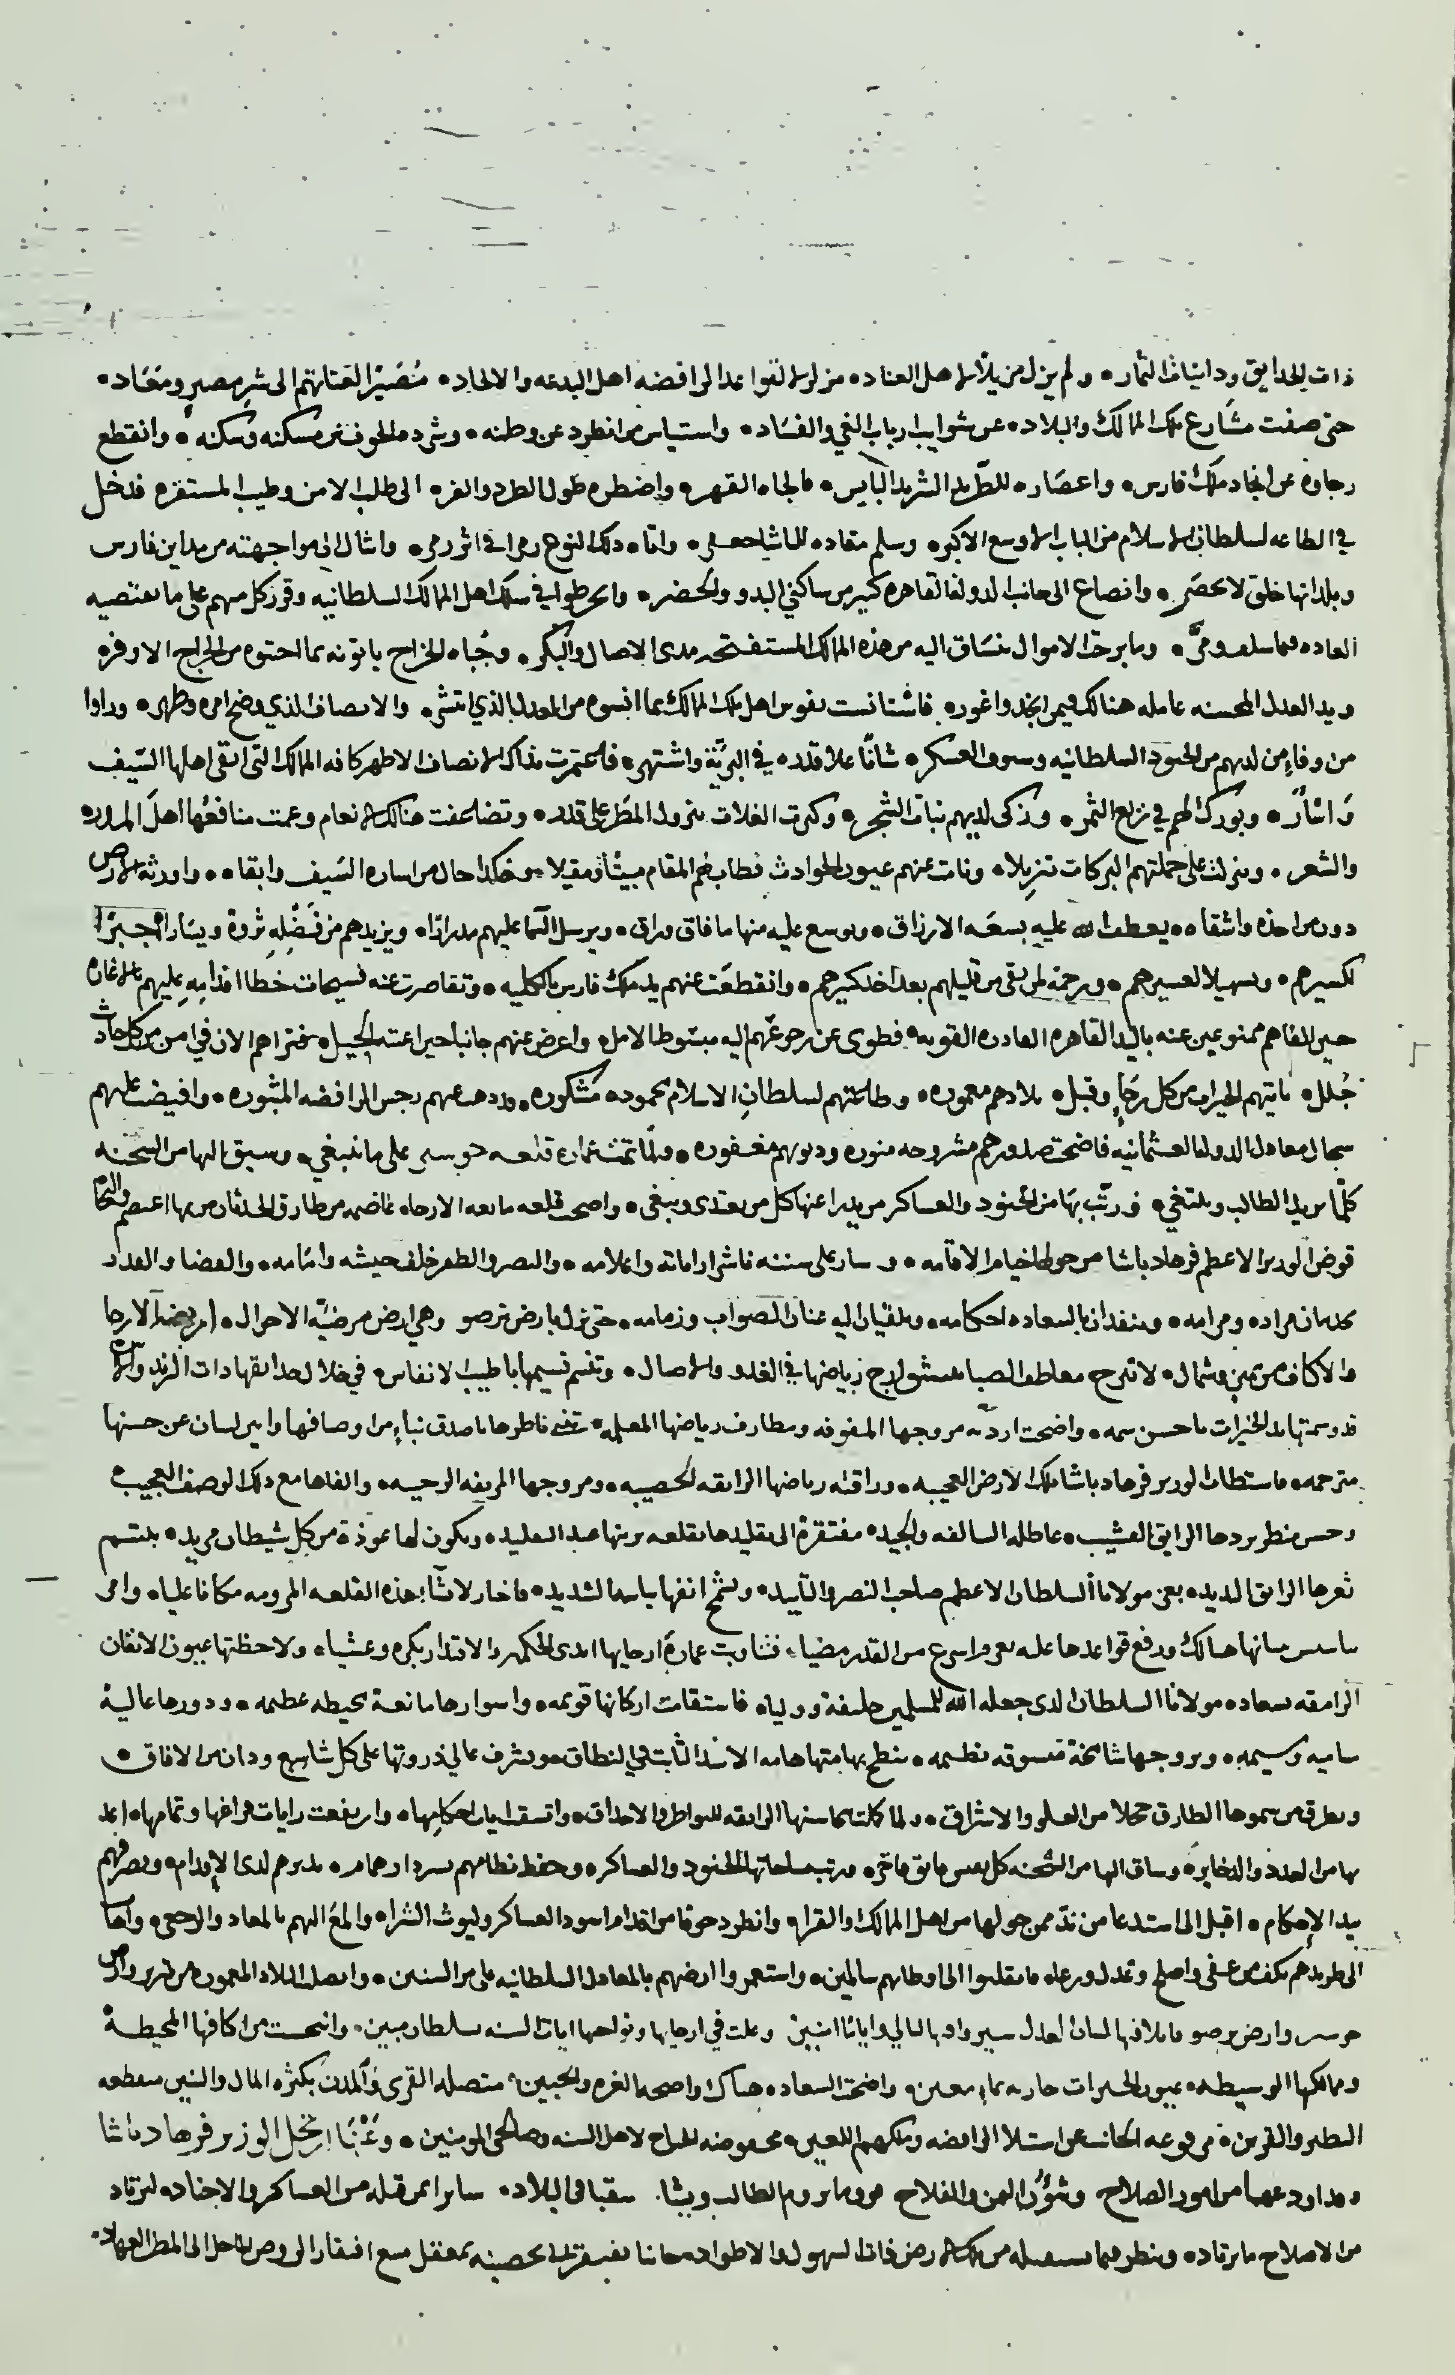 ذات الحدايق ودانيات الثمار ٥ ولم يزل من يلاد اهل العناد ٥ مزلزلا لقواعد الرافضه اهل البدعه والالحاد ٥ مُصَيّرا لعتاتهم الى شر مصير ومَعَاد ٥
حتى صفت مشارع تلك الممالك والبلاد ٥ عن شوايب ارباب الغي والفساد ٥ واستياس من انطرد عن وطنه ٥ وشرده الخوف عن مسكنه وسكنه ٥ وانقطع
رجاوه عن انجاد ملك فارس ٥ واعصاره للطريد الشريد البايس ٥ فالجاه القهر ٥ واضطره طول الطرد والفر ٥ الى طلب الامن وطيب المستقر ٥ فدخل
في الطاعه لسلطان الاسلام من الباب الاوسع الاكبر ٥ وسلم مقاده للباشا جعفر ٥ واتاه ذلك النوع زمرا في اثر زمر ٥ وانثال الى مواجهته من مداين فارس
وبلدانها خلق لا يحصر ٥ وانصاع الى جانب الدوله القاهره كثير من ساكني البدو والحضر ٥ وانخرطوا في سلك اهل الممالك السلطانيه وقرر كل منهم على ما تقتضيه
العاده فيما سلف ومرّ ٥ وما برحت الاموال تنساق اليه من هذه الممالك المستفتحه مدى الاصال والبكر ٥ وجُباه الخراج ياتونه بما احتوه من الخراج الاوفر ٥
ويد العدل المحسنه عامله هنالك فيمن انجد واغور ٥ فاستانست نفوس اهل تلك الممالك بما انسوه من العدل الذي انتشر ٥ والانصاف الذي وضح امره وظهر ٥ وراوا
من وفاء من لديهم من الجنود السلطانيه وسوف العسكر ٥ شانًا علا قدره في البريّة واشتهر ٥ فاعتمرت بذاك الانصاف الاطهر كافه الممالك التى ابقى اهلها السّيف
وَاَسْأَرَ ٥ وبورك لهم في نزايع الثمر ٥ وزكى لديهم نبات الشجر ٥ وكثرت الغلات بنزول المطر على قدر ٥ وتضاعفت هنالك الانعام وعمت منافعُها اهل المدر
والشعر ٥ ونزلت على جملتهم البركات تنزيلا ٥ ونامت عنهم عيون الحوادث فطاب لهم المقام مبيتًا ومقيلا ٥ وهكذا حال من اساره السّيف وابقاه ٥ واورثه الارض
دون من اخذه واشقاه ٥ يعطف الله عليه بسعه الارزاق ٥ ويوسع عليه منها ما فاق وراق ٥ ويرسل السما عليهم مدرارًا ٥ ويزيدهم من فَضْلِهِ ثروة ويسارا ٥ جبرًا
لكسيرهم ٥ وتسهيلا لعسيرهم ٥ ورحمة لمن بقي من قليلهم بعد اخذ كثيرهم ٥ وانقطعت عنهم يد ملك فارس بالكليه ٥ وتقاصرت عنه فسيحات خطا اقدامِهِ عليهم بالاغاره
حين الفاهم ممنوعين عنه باليد القاهره القادره القويه ٥ فطوى عن رجوعهم اليه مبسوط الامل ٥ واعرض عنهم جانبا حين اعيته الحيل ٥ فتراهم الان في امن من كل حادث
جَلل ٥ تاتيهم الخيرات من كل رجَاٍ وقبل ٥ بلادهم معموره ٥ وطاعتهم لسلطان الاسلام محموده مشكوره ٥ وذهب عنهم رجس الرافضه المثبوره ٥ وافيضت عليهم
سجال معادل الدوله العثمانيه فاضحت صدورهم مشروحه منوره وذنوبهم مغفوره ٥ ولما تمت عمارة قلعه على ما ينبغي ٥ وسيق اليها من الشحنه
كلما يريد الطالب ويبتغي ٥ فرتب بها من الجنود والعساكر من يدرا عنها كل من يعتدي ويبغي ٥ واضحت قلعه مانعه الارجاء عاصمه من طارق الحدثان من بها اعتصم والتجا
قوض الوزير الاعظم فرهاد باشا من حولها خيام الاقامه ٥ وسار على سننه ناشرا راياته واعلامه ٥ والنصر والظفر خلف جيشه وامامه ٥ والقضا والقدر
يخدمان مراده ومرامه ٥ وينفذان بالسعاده احكامه ٥ ويلقيان اليه عنان الصواب وزمامه ٥ حتى نزل بارض ترصو وهي ارض مرضيّة الاحوال ٥ اريضة الارجا
والاكناف من يمين وشمال ٥ لا تبرح معاطف الصبا تستنشق ارج رياضها في الغدو والاصال ٥ وتنسم نسيمها باطيب الانفاس ٥ في خلال حدايقها ذات الرند والاس
قد وسمتها يد الخيرات باحسن سمه ٥ واضحت اردية مروجها المفوفه ومطارف رياضها المعلمه ٥ تنبئ ناظرها باصدق نباء من اوصافها وابين لسان عن حسنها
مترجمه ٥ فاستطاب الوزير فرهاد باشا تلك الارض العجيبه ٥ وراقته رياضها الرايقه الخصيبه ٥ ومروجها المريفه الرحيبه ٥ والفاها مع ذلك الوصف العجيب ٥
وحسن منظر بردها الرايق القشيب ٥ عاطله السالفه والجيد ٥ مفتقرة الى تقليدها بقلعه يزينها عند التقليد ٥ ويكون لها عوذة من كل شيطان مريد ٥ يبتسم
ثغرها الرايق البديد ٥ بعز مولانا السلطان الاعظم صاحب النصر والتاييد ٥ ويشمخ انفها بباسه الشديد ٥ فاختار لانشاء هذه القلعه المرومه مكانا عليا ٥ وامر
بتاسيس مبانيها هنالك ورفع قواعدها عليه بعزم اسرع من القدر مضيا ٥ فتناوبت عمارة ارجايها ايدي الحكمه والاقتدار بكره وعشيا ٥ ولاحظتها عيون الاتقان
الرامقه بسعاده مولانا السلطان الذى جعله الله للمسلمين خليفة ووليا ٥ فاستقامت اركانها قويمه ٥ واسوارها مانعة محيطه عظيمه ٥ ودورها عالية
ساميه وسيمه ٥ وبروجها شامخة متسوقه نظيمه ٥ ينطح بهامتها هامه الاسد الثابت في النطاق ٥ ويشرف عالي ذروتها على كل شاسع ودان من الافاق ٥
ويطرق من سموها الطارق محلا من العلو والاشراق ٥ ولما كملت محاسنها الرايقه للنواظر والاحداق ٥ واتسقت ايات احكامها ٥ وارتفعت رايات فراغها وتمامها ٥ اعد
بها من العدد والذخاير ٥ وساق اليها من الشحنه كل نفيس فايق فاخر ٥ ورتب بساحاتها الجنود والعساكر ٥ وحفظ نظامهم بسردار همام ٥ يدبرهم لدى الاقدام ٥ ويصرفهم
بيد الاحكام ٥ اقبل الى استدعا من ندّ ممن حولها من اهل الممالك والقرا ٥ وانطرد خوفا من اقدام اسود العساكر وليوث الشرا ٥ والمع اليهم بالمعاد والرجعى ٥ واها
الى طريدهم بكف من عفى واصلح وعدل ورعاه فانقلبوا الى اوطانهم سالمين ٥ واستعمروا ارضهم بالمعادل السلطانيه ملى من السنين ٥ واتصلت البلاد المعموره من تبريز وارض
وارض ترصو فاملافيها لسان العدل سيروا فيها ليالي واياما امنين ٥ وعلت في ارجايها ونواحيها ايات السنه بسلطان مبين ٥ واضحت من اكنافها المحيطة
وممالكها الوسيطه ٥ عيون الخيرات جاريه بماء معين ٥ واضحت السعاده هناك واضحه الغره والجبين ٥ متصله القرى والمدن بكثره المال والبنين منقطعه
النظير والقرين ٥ مرفوعه الجانب عن استيلا الرافضه وملكهم اللعين ٥ مخفوضه الجناح لاهل السنه وصالحى المومنين ٥ وعُقْبَها ارتحل الوزير فرهاد باشا
وقد اودعها من امور الصلاح وشؤون اليمن والفلاح فوق ما يروم الطالب ويشا ٥ سايرا بمن قبله من العساكر والاجناد ٥ ليرتاد
من الاصلاح ما يرتاد ٥ وينظر فيما يستقبله من تلك الارض ذات السهول والاطواد ٥ جانبا يفتقر الى تحصينه بمعقل منيع افتقار الروض الماحل الى المطر العهاد ٥